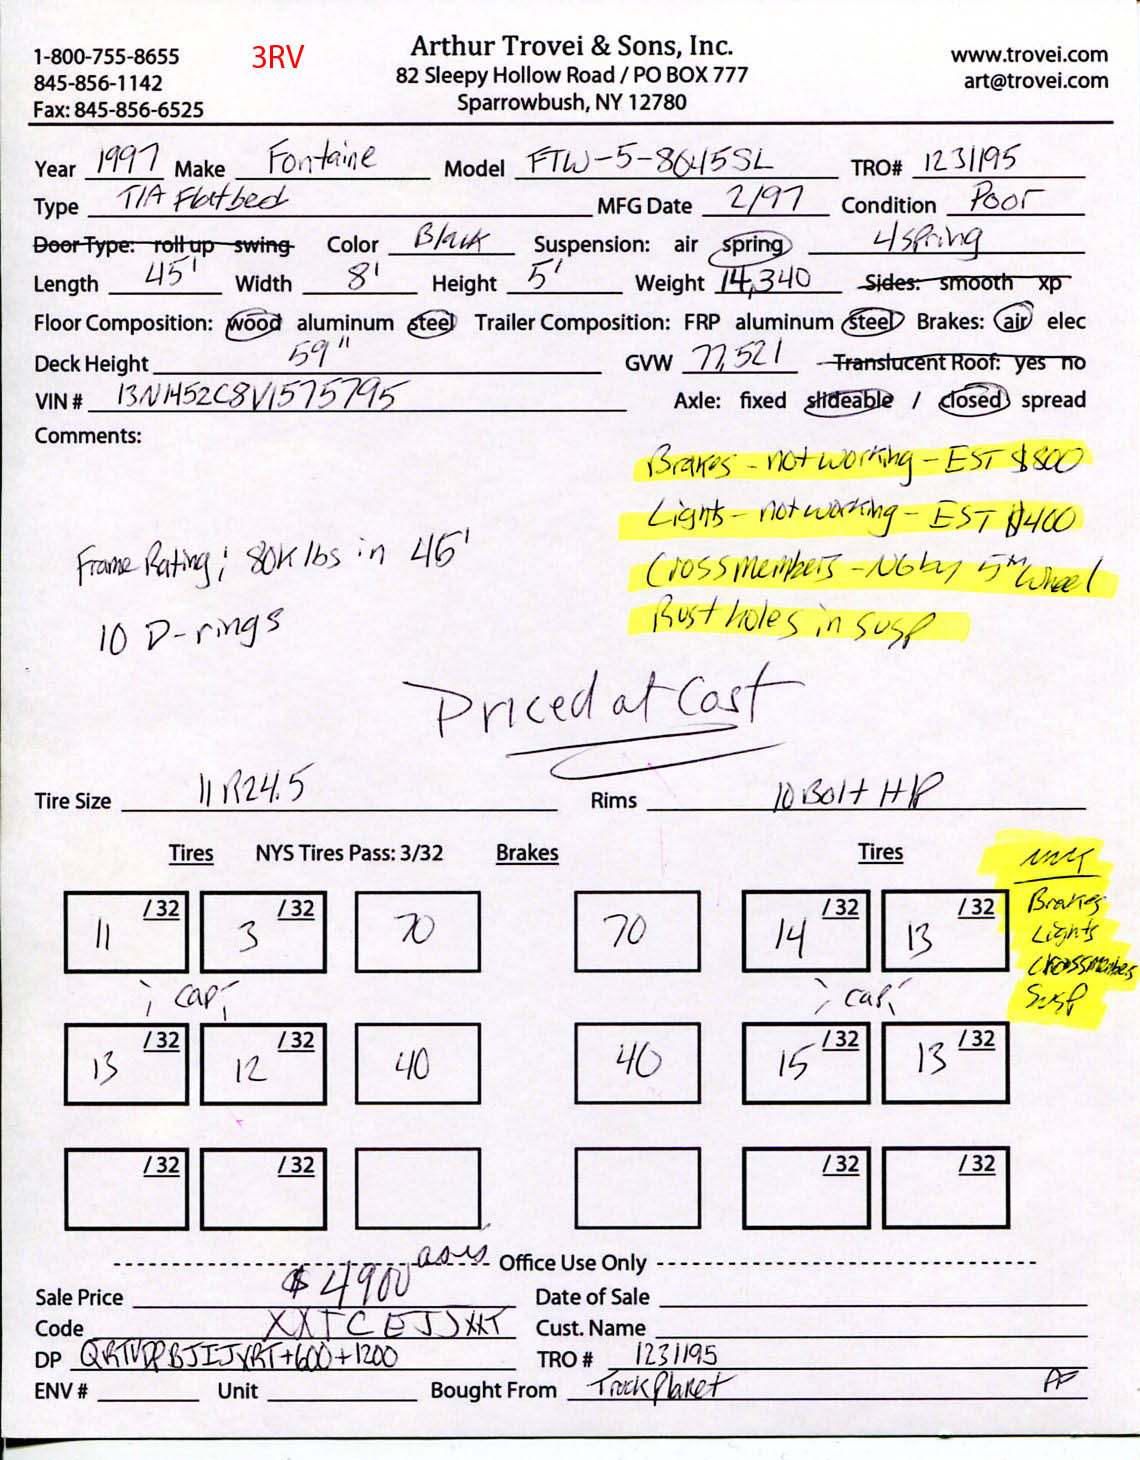 1-800-755-8655 3RV Arthur Trovei & Sons, Inc. www.trovei.com
845-856-1142 82 Sleepy Hollow Road / PO BOX 777 art@trovei.com
Fax: 845-856-6525 Sparrowbush, NY 12780
Year 1997 Make Fontaine Model FTW-5-8045SL TRO# 1231195
Type T/A Flatbed MFG Date 2/97 Condition Poor
Door Type: roll up swing Color Black Suspension: air spring 4 spring
Length 45' Width 8' Height 5' Weight 14,340 Sides: smooth xp
Floor Composition: wood aluminum steel Trailer Composition: FRP aluminum steel Brakes: air elec
Deck Height 59" GVW 77,521 Translucent Roof: yes no
VIN # 13N1452C8V1575795 Axle: fixed slideable / closed spread
Comments:
Brakes - not working - EST $800
Lights - not working - EST $400
Crossmembers - NG by 5th Wheel
Rust holes in susp
Frame Rating; 80K lbs in 45'
10 D-rings
Priced at Cost
Tire Size 11R24.5 Rims 10 Bolt H/P
Tires NYS Tires Pass: 3/32 Brakes Tires
Brakes
Lights
Crossmembers
Susp
11 /32 3 /32 70 70 14 /32 13 /32
; cap; ; cap;
13 /32 12 /32 40 40 15 /32 13 /32
/32 /32 /32 /32
as is Office Use Only
Sale Price $4900 Date of Sale
Code XXTCEJJXXT Cust. Name
DP +600+1200 TRO # 1231195
ENV # Unit Bought From Truck Planet